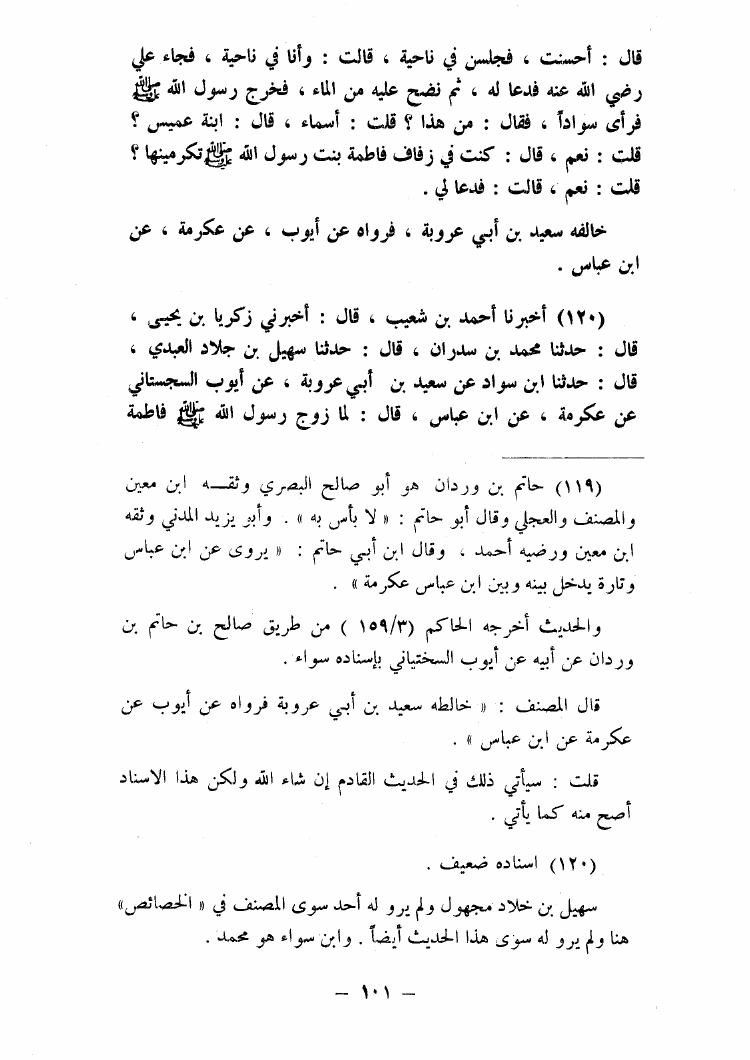 قال : أحسنت ، فجلسن في ناحية ، قالت : وأنا في ناحية ، فجاء علي
رضي الله عنه فدعا له ، ثم نضح عليه من الماء ، فخرج رسول الله ﷺ
فرأى سواداً ، فقال : من هذا ؟ قلت : أسماء ، قال : ابنة عميس ؟
قلت : نعم ، قال : كنت في زفاف فاطمة بنت رسول الله ﷺ تكرمينها ؟
قلت : نعم ، قالت : فدعا لي .
خالفه سعيد بن أبي عروبة ، فرواه عن أيوب ، عن عكرمة ، عن
ابن عباس .
(١٢٠) أخبرنا أحمد بن شعيب ، قال : أخبرني زكريا بن يحيى ،
قال : حدثنا محمد بن سدران ، قال : حدثنا سهيل بن جلاد العبدي ،
قال : حدثنا ابن سواد عن سعيد بن أبي عروبة ، عن أيوب السجستاني
عن عكرمة ، عن ابن عباس ، قال : لما زوج رسول الله ﷺ فاطمة
(١١٩) حاتم بن وردان هو أبو صالح البصري وثقــه ابن معين
والمصنف والعجلي وقال أبو حاتم : « لا بأس به » . وأبو يزيد المدني وثقه
ابن معين ورضيه أحمد ، وقال ابن أبي حاتم : « يروى عن ابن عباس
وتارة يدخل بينه وبين ابن عباس عكرمة » .
والحديث أخرجه الحاكم (١٥٩/٣ ) من طريق صالح بن حاتم بن
وردان عن أبيه عن أيوب السختياني بإسناده سواء .
قال المصنف : « خالطه سعيد بن أبي عروبة فرواه عن أيوب عن
عكرمة عن ابن عباس » .
قلت : سيأتي ذلك في الحديث القادم إن شاء الله ولكن هذا الاسناد
أصح منه كما يأتي .
(١٢٠) اسناده ضعيف .
سهيل بن خلاد مجهول ولم يرو له أحد سوى المصنف في « الخصائص»
هنا ولم يرو له سوى هذا الحديث أيضاً . وابن سواء هو محمد .
– ١٠١ –